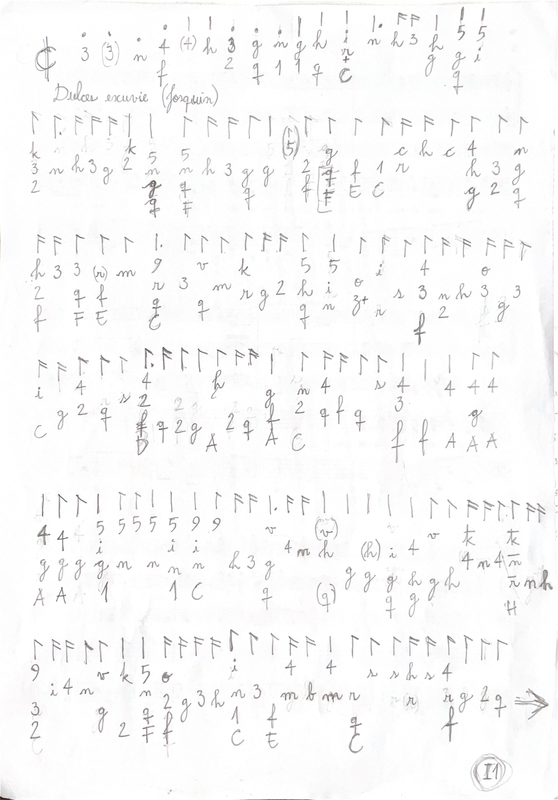 3 (3) n 4 (4) h 3 g n g h i n h 3 h 5 5
f 2 q 1 1 q r+ g g i
C q
Dulces exuvie (Josquin)
k k 5 5 (5) g c h c 4 n
3 n h 3 g 2 n n h 3 g g 2 q f 1 r h 3 g
2 g q q f F E C g 2 q
h 3 3 (r) m 9 v k 5 5 i 4 o
2 q f r 3 m r g 2 h i o s 3 n h 3 3
f F E q q q n z+ r 2 g
C f
i 4 s 4 h g n 4 s 4 4 4 4
g 2 q 2 2 q f q 3 g
C q 2 g A 2 q A C f f A A A
D
4 4 5 5 5 5 5 9 9 v (v) v k k
g g g i i i 4 m h (h) i 4 4 n 4 n
A A g n n n n h 3 g g g g h g h r n h
1 1 C q (q) q g H
9 v k 5 o i 4 4 s s h s 4
i 4 n n 2 g 3 h n 3 m b m r r g 2 q
3 g 2 q f 1 f q f
2 F C E C
I1